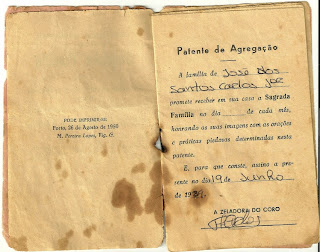 PODE IMPRIMIR-SE
Porto, 26 de Agosto de 1950
M. Pereira Lopes, Vig. G.
Patente de Agregação
A família de José dos
Santos Carlos Joe
promete receber em sua casa a Sagrada
Família no dia de cada mês,
honrando as suas imagens com as orações
e práticas piedosas determinadas nesta
patente.
E, para que conste, assino a pre-
sente no dia 19 de Junho
de 19
A ZELADORA DO CORO